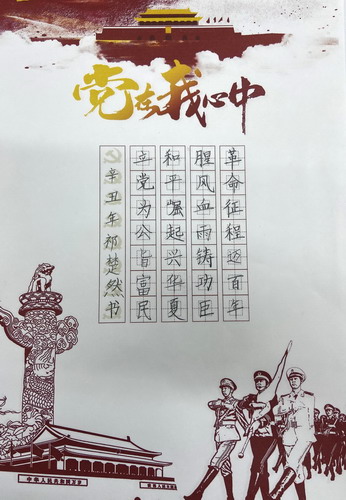 党在我心中
革命征程百年
腥风血雨铸功臣
和平崛起兴华夏
立党为公旨富民
辛丑年祁楚然书
中华人民共和国万岁